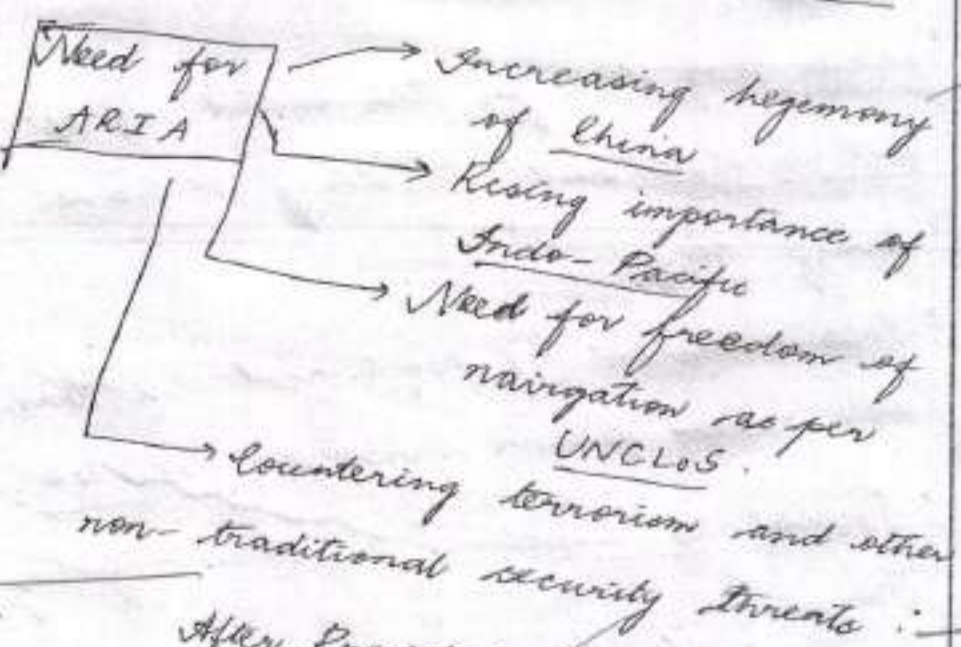 Need for
ARIA
Increasing hegemony
of China
Rising importance of
Indo-Pacific
Need for freedom of
nairgation as per
UNCLOS.
Countering terrorism and other
non-traditional security threats :-
After